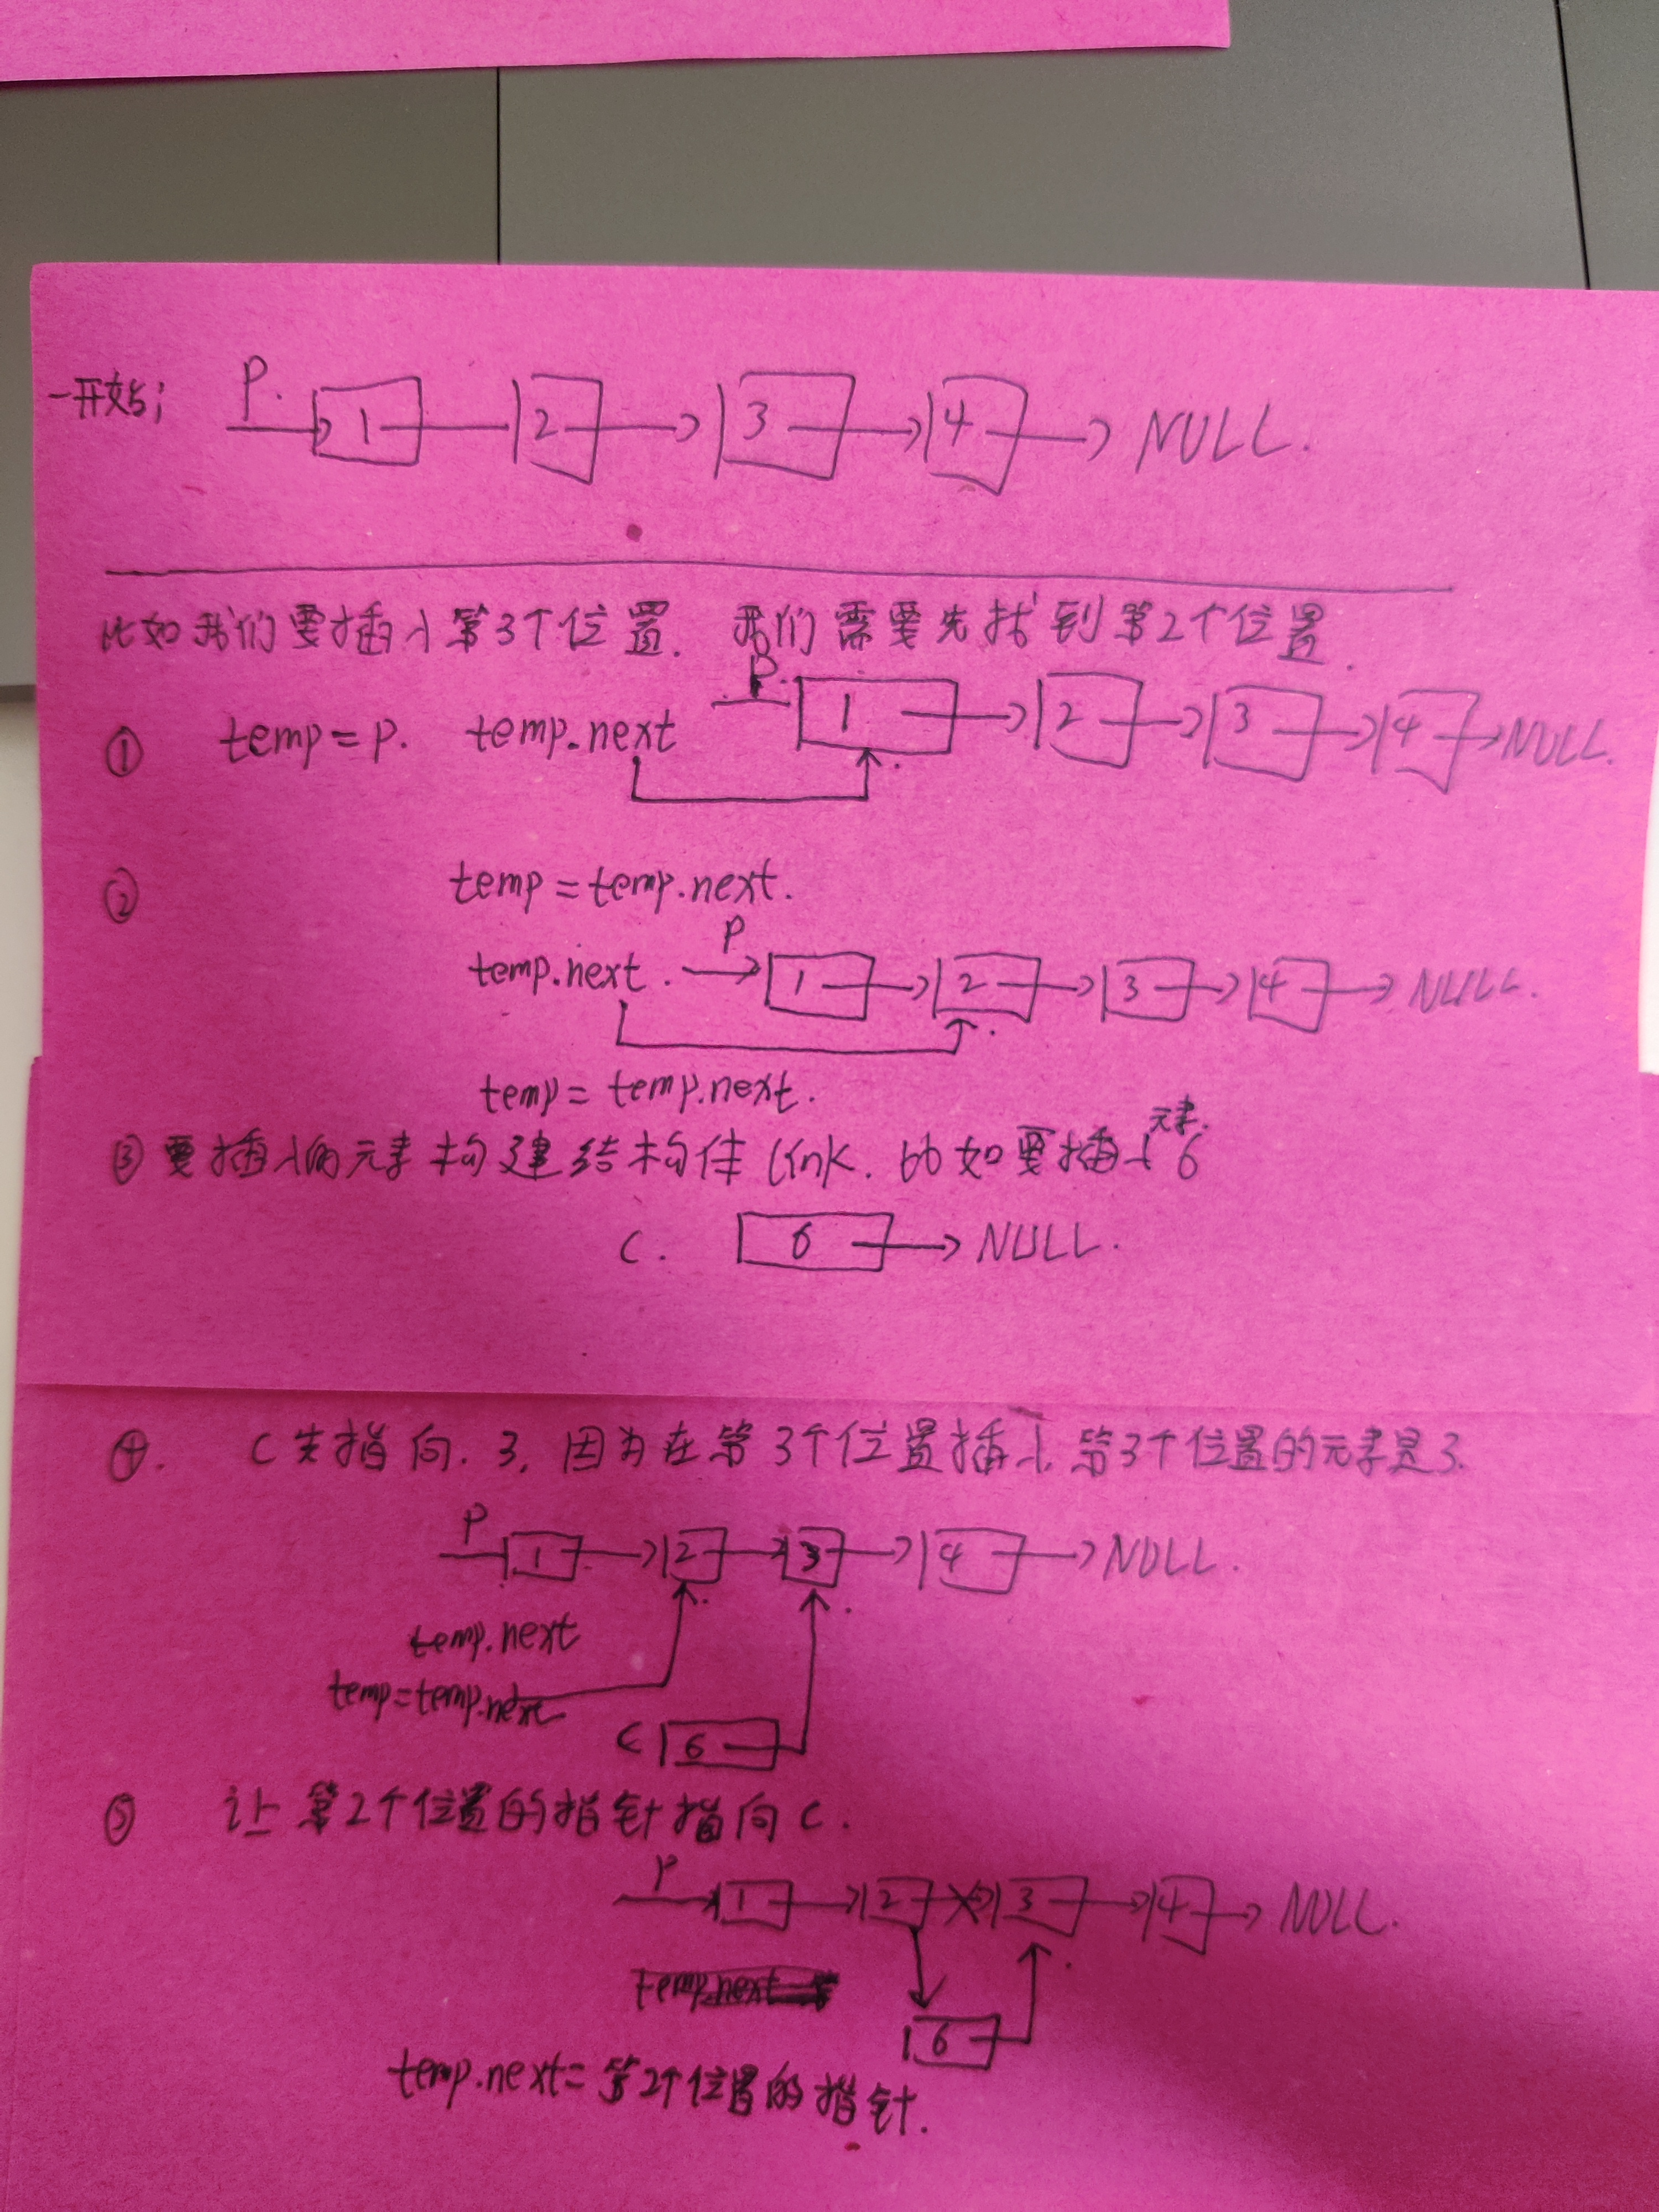 一开始; P. 1 2 3 4 NULL.
比如我们要插入第3个位置. 我们需要先找到第2个位置.
① temp=P. temp.next P. 1 2 3 4 NULL.
② temp=temp.next.
temp.next. P 1 2 3 4 NULL.
temp=temp.next.
③ 要插入的元素构建结构体link. 比如要插入元素. 6
C. 6 NULL.
④. C先指向. 3, 因为在第3个位置插入, 第3个位置的元素是3.
P 1 2 3 4 NULL.
temp.next
temp=temp.next
C 6
⑤ 让第2个位置的指针指向C.
P 1 2 3 4 NULL.
temp.next=
6
temp.next=第2个位置的指针.